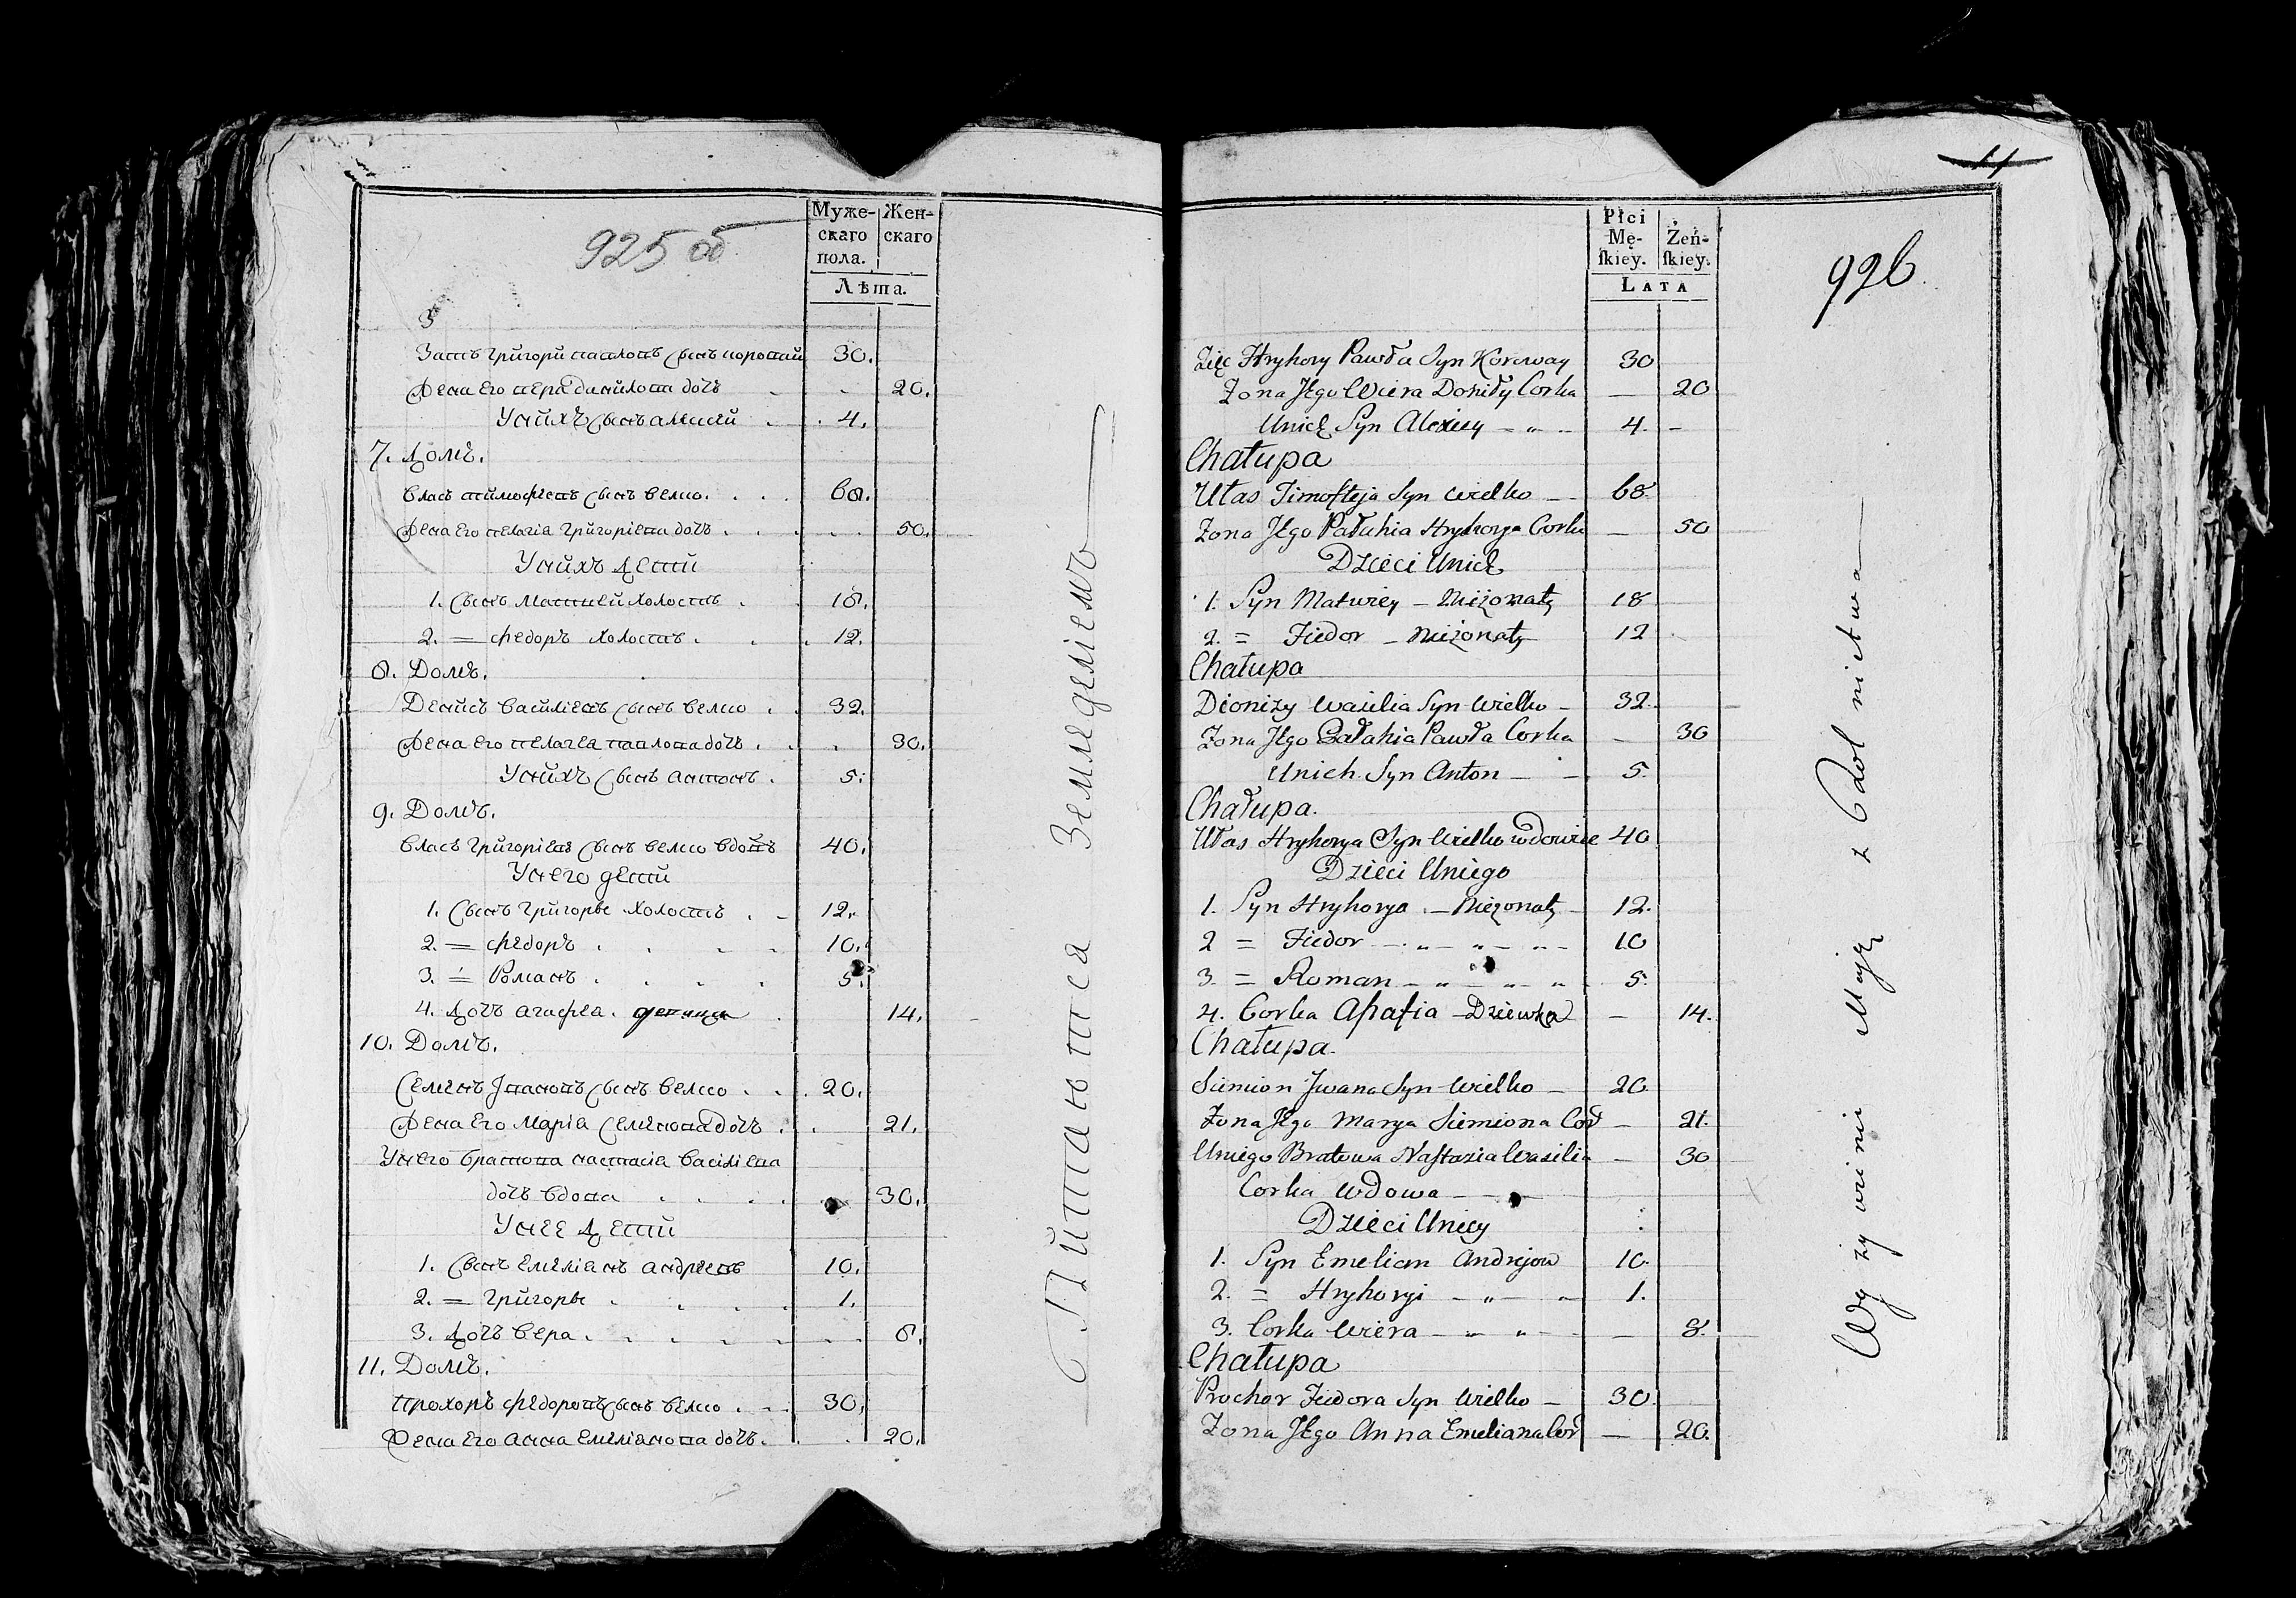 925 об
Муже-скаго пола. Жен-скаго
Лѣта.
Зять Григори павловъ сынъ коровай 30.
Жена его вера данилова дочь 20.
У нихъ сынъ алексей 4.
7. Домъ.
Власъ тимофеевъ сынъ велко. 68.
Жена его пелагіа григоріева дочь 50.
У нихъ дети
1. Сынъ Матвей холостъ 18.
2. = Федоръ холостъ. 12.
8. Домъ.
Денисъ василіевъ сынъ велко 32.
Жена его пелагеа павлова дочь 30.
У нихъ сынъ антонъ 5.
9. Домъ.
Власъ григоріевъ сынъ велко вдовъ 40.
У него дети
1. Сынъ григорье холостъ 12.
2. = Федоръ 10.
3. = Романъ 5.
4. Дочь агафеа. девица 14.
10. Домъ.
Семенъ Ивановъ сынъ велко 20.
Жена его Маріа семенова дочь 21.
У него братова настасіа василіева
дочь вдова 30.
У нее дети
1. Сынъ емеліанъ андреевъ 10.
2. = григорье 1.
3. Дочь вера 8.
11. Домъ.
Прохоръ Федоровъ сынъ велко 30.
Жена его анна емеліанова дочь. 20.
Питаются Земледеліемъ
11
Płci Mę-skiey. Żeń-skiey.
LATA
926.
Zięć Hryhory Pawła Syn Koroway 30
Żona Jego Wiera Daniły Corka — 20
Unich Syn Alexiey 4.
Chałupa
Ułas Timofieja Syn Wielko 68.
Żona Jego Pałahia Hryhorya Corka — 50
Dzieci Unich
1. Syn Matwiey — Nieżonaty 18
2. = Fiedor — Nieżonaty 12
Chałupa
Dionizy Wasilia Syn Wielko — 32.
Żona Jego Pałahia Pawła Corka — 30
Unich Syn Anton — 5.
Chałupa.
Ułas Hryhorya Syn Wielko wdowiec 40
Dzieci Uniego
1. Syn Hryhorya — Nieżonaty 12.
2 = Fiedor 10
3. = Roman 5.
4. Corka Ahafia — Dziewka — 14.
Chałupa.
Siemion Jwana Syn Wielko — 20.
Żona Jego Marya Siemiona Cor — 21.
Uniego Bratowa Nastazia Wasilia — 30
Corka Wdowa
Dzieci Uniey
1. Syn Emelian Andrejow 10.
2. = Hryhoryi 1.
3. Corka Wiera — 8.
Chałupa
Prochor Fiedora Syn Wielko — 30.
Żona Jego Anna Emeliana Cor — 20.
Wyżywieni Mają z Rolnictwa